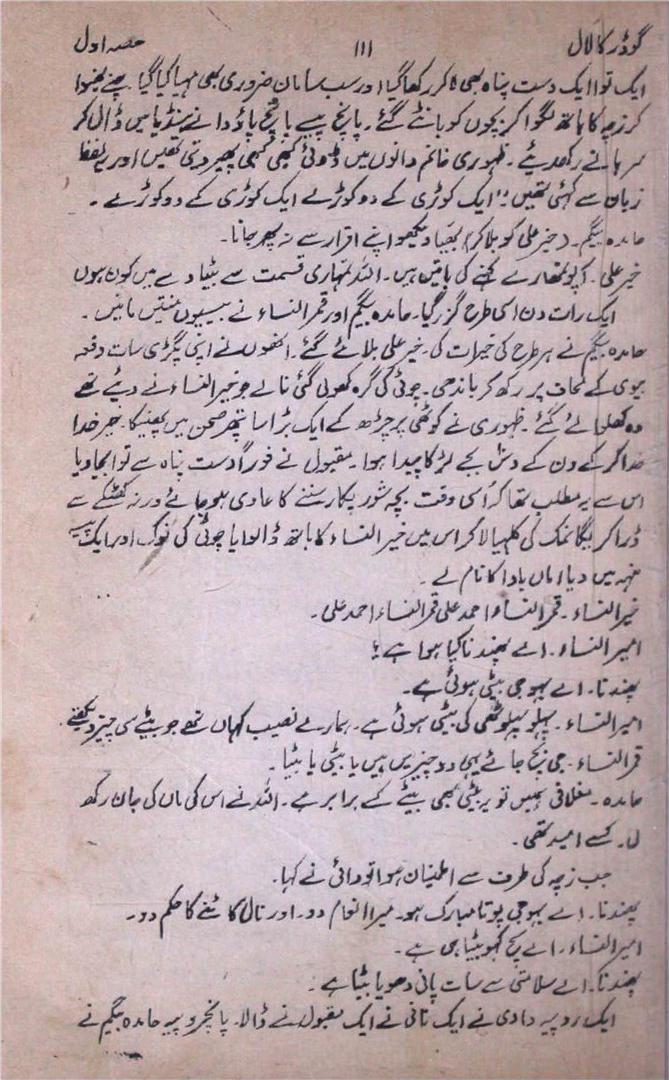 گودڑ کا لال ۱۱۱ حصہ اول
ایک توا ایک دست پناہ بھی لا کر رکھا گیا اور سب سامان ضروری بھی مہیا کیا گیا۔ چنے بھنوا
کر زچہ کا ہاتھ لگوا کر بچوں کو بانٹے گئے۔ پانچ پیسے پانچ پاؤ دانے ہنڈیا میں ڈال کر
سرہانے رکھ دیئے۔ ظہوری خانم دانوں میں ڈوئی کبھی کبھی پھیر دیتی تھیں اور یہ لفظ
زبان سے کہتی تھیں "ایک کوڑی کے دو کوڑے ایک کوڑی کے دو کوڑے۔
حامدہ بیگم۔ (خیر علی کو بلا کر) بھیا دیکھو اپنے اقرار سے نہ پھر جانا۔
خیر علی۔ آپو تمھارے کہنے کی باتیں ہیں۔ اللہ تمہاری قسمت سے بیٹا دے میں کون ہوں
ایک رات دن اسی طرح گزر گیا۔ حامدہ بیگم اور قمر النساء نے بیسیوں منتیں مانیں۔
حامدہ بیگم نے ہر طرح کی خیرات کی۔ خیر علی بلائے گئے۔ انھوں نے اپنی پگڑی سات دفعہ
بیوی کے لحاف پر رکھ کر باندھی۔ چوٹی کی گرہ کھولی گئی تالے جو خیر النساء نے دیئے تھے
وہ کھلوائے گئے۔ ظہوری نے کوٹھی پر چڑھ کے ایک بڑا سا پتھر صحن میں پھینکا۔ خیر خدا
خدا کر کے دن کے دس بجے لڑکا پیدا ہوا۔ مقبول نے فوراً دست پناہ سے توا بجا دیا
اس سے یہ مطلب تھا کہ اُسی وقت بچہ شور پکار سننے کا عادی ہو جائے ورنہ کھٹکے سے
ڈرا کریگا نمک کی کلہیا لا کر اس میں خیر النساء کا ہاتھ ڈالوایا چوٹی کی نوک اور ایک پیسہ
منہ میں دیا اماں باوا کا نام لے۔
خیر النساء۔ قمر النساء احمد علی قمر النساء احمد علی۔
امیر النساء۔ اے پھندنا کیا ہوا ہے؟
پھندنا۔ اے بہو جی بیٹی ہوئی ہے۔
امیر النساء۔ پہلو پہلوٹھی کی بیٹی ہوئی ہے۔ ہمارے نصیب کہاں تھے جو بیٹے سی چیز دیکھتے۔
قمر النساء۔ جی بچ جائے یہی دو چیزیں ہیں یا بیٹی یا بیٹا۔
حامدہ۔ مغلانی ہمیں تو یہ بیٹی بھی بیٹے کے برابر ہے۔ اللہ نے اس کی ماں کی جان رکھ
لی۔ کسے امید تھی۔
جب زچہ کی طرف سے اطمینان ہوا تو دائی نے کہا۔
پھندنا۔ اے بہو جی پوتا مبارک ہو۔ میرا انعام دو۔ اور نال کاٹنے کا حکم دو۔
امیر النساء۔ اے سچ کہو بیٹا ہی ہے۔
پھندنا۔ اے سلامتی سے سات پانی دھویا بیٹا ہے۔
ایک روپیہ دادی نے ایک نانی نے ایک مقبول نے ڈالا۔ پانچ روپیہ حامدہ بیگم نے